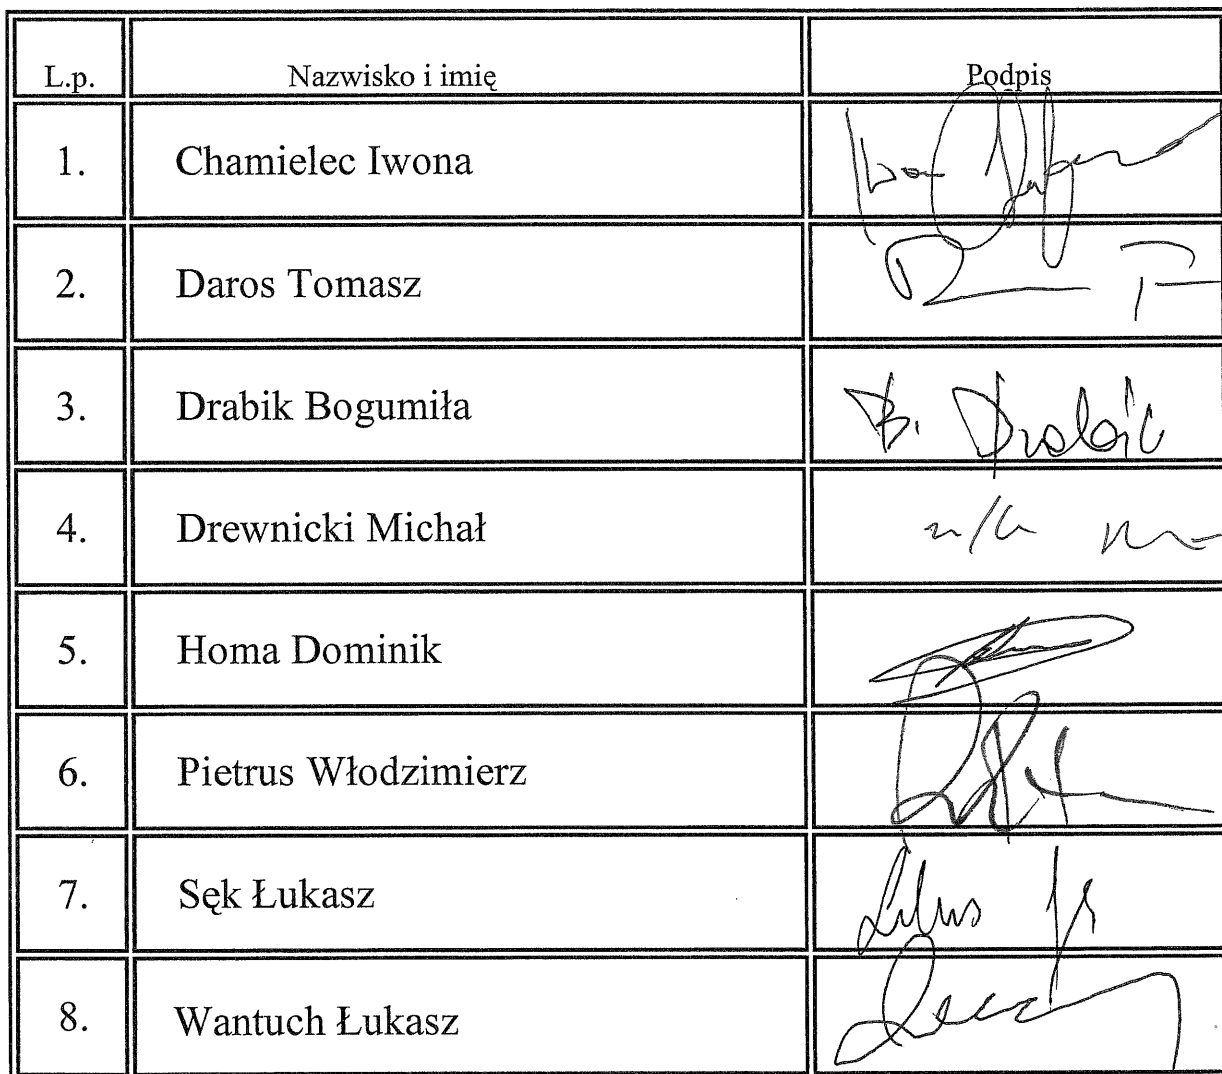 L.p. Nazwisko i imię Podpis
1. Chamielec Iwona
2. Daros Tomasz
3. Drabik Bogumiła B. Drabik
4. Drewnicki Michał
5. Homa Dominik
6. Pietrus Włodzimierz
7. Sęk Łukasz
8. Wantuch Łukasz